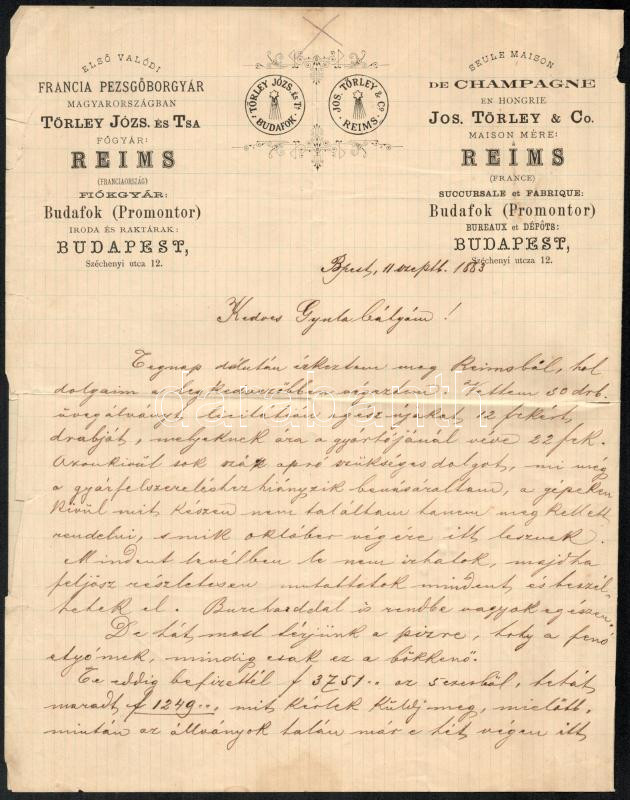 ELSŐ VALÓDI
FRANCIA PEZSGŐBORGYÁR
MAGYARORSZÁGBAN
TÖRLEY JÓZS. ÉS TSA
FŐGYÁR:
REIMS
(FRANCIAORSZÁG)
FIÓKGYÁR:
Budafok (Promontor)
IRODA ÉS RAKTÁRAK:
BUDAPEST,
Széchenyi utca 12.
TÖRLEY JÓZS. ÉS TS
BUDAFOK
JOS. TÖRLEY & Co
REIMS
SEULE MAISON
DE CHAMPAGNE
EN HONGRIE
JOS. TÖRLEY & Co.
MAISON MÈRE:
REIMS
(FRANCE)
SUCCURSALE et FABRIQUE:
Budafok (Promontor)
BUREAUX et DÉPÔTS:
BUDAPEST,
Széchenyi utcza 12.
Bpest, 11 szeptb. 1883
Kedves Gyula bátyám!
Tegnap délután érkeztem meg Reimsból, hol
dolgaim a legkedvezőbben végeztem. Vettem 30 drb.
üvegállványt licitátión egész ujakat 12 frkért
drabját, melyeknek ára a gyártójánál véve 22 frk.
Azonkivül sok száz apró szükséges dolgot, mi még
a gyárfelszereléshez hiányzik bevásároltam, a gépeken
kivül mit készen nem találtam hanem meg kellett
rendelni, s mik október végére itt lesznek.
Mindent levélben le nem irhatok, majd ha
feljösz részletesen mutattatok mindent és beszél-
hetek el. Burcharddal is rendbe vagyok egészen.
De hát most térjünk a pizre, hogy a fenő
etyémek, mindig csak ez a bökkenő.
Te eddig befizettél f 3751.. az 5 ezerből, tehát
maradt f 1249.., mit kérlek küldj meg, mielőtt,
miután az állványok talán már e hét végen itt
darabanth